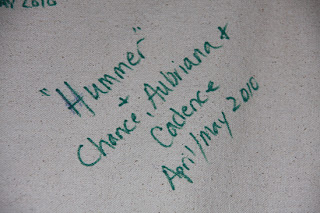 AY 2010
"Hummer"
Chance, Aubriana +
Cadence
April/May 2010